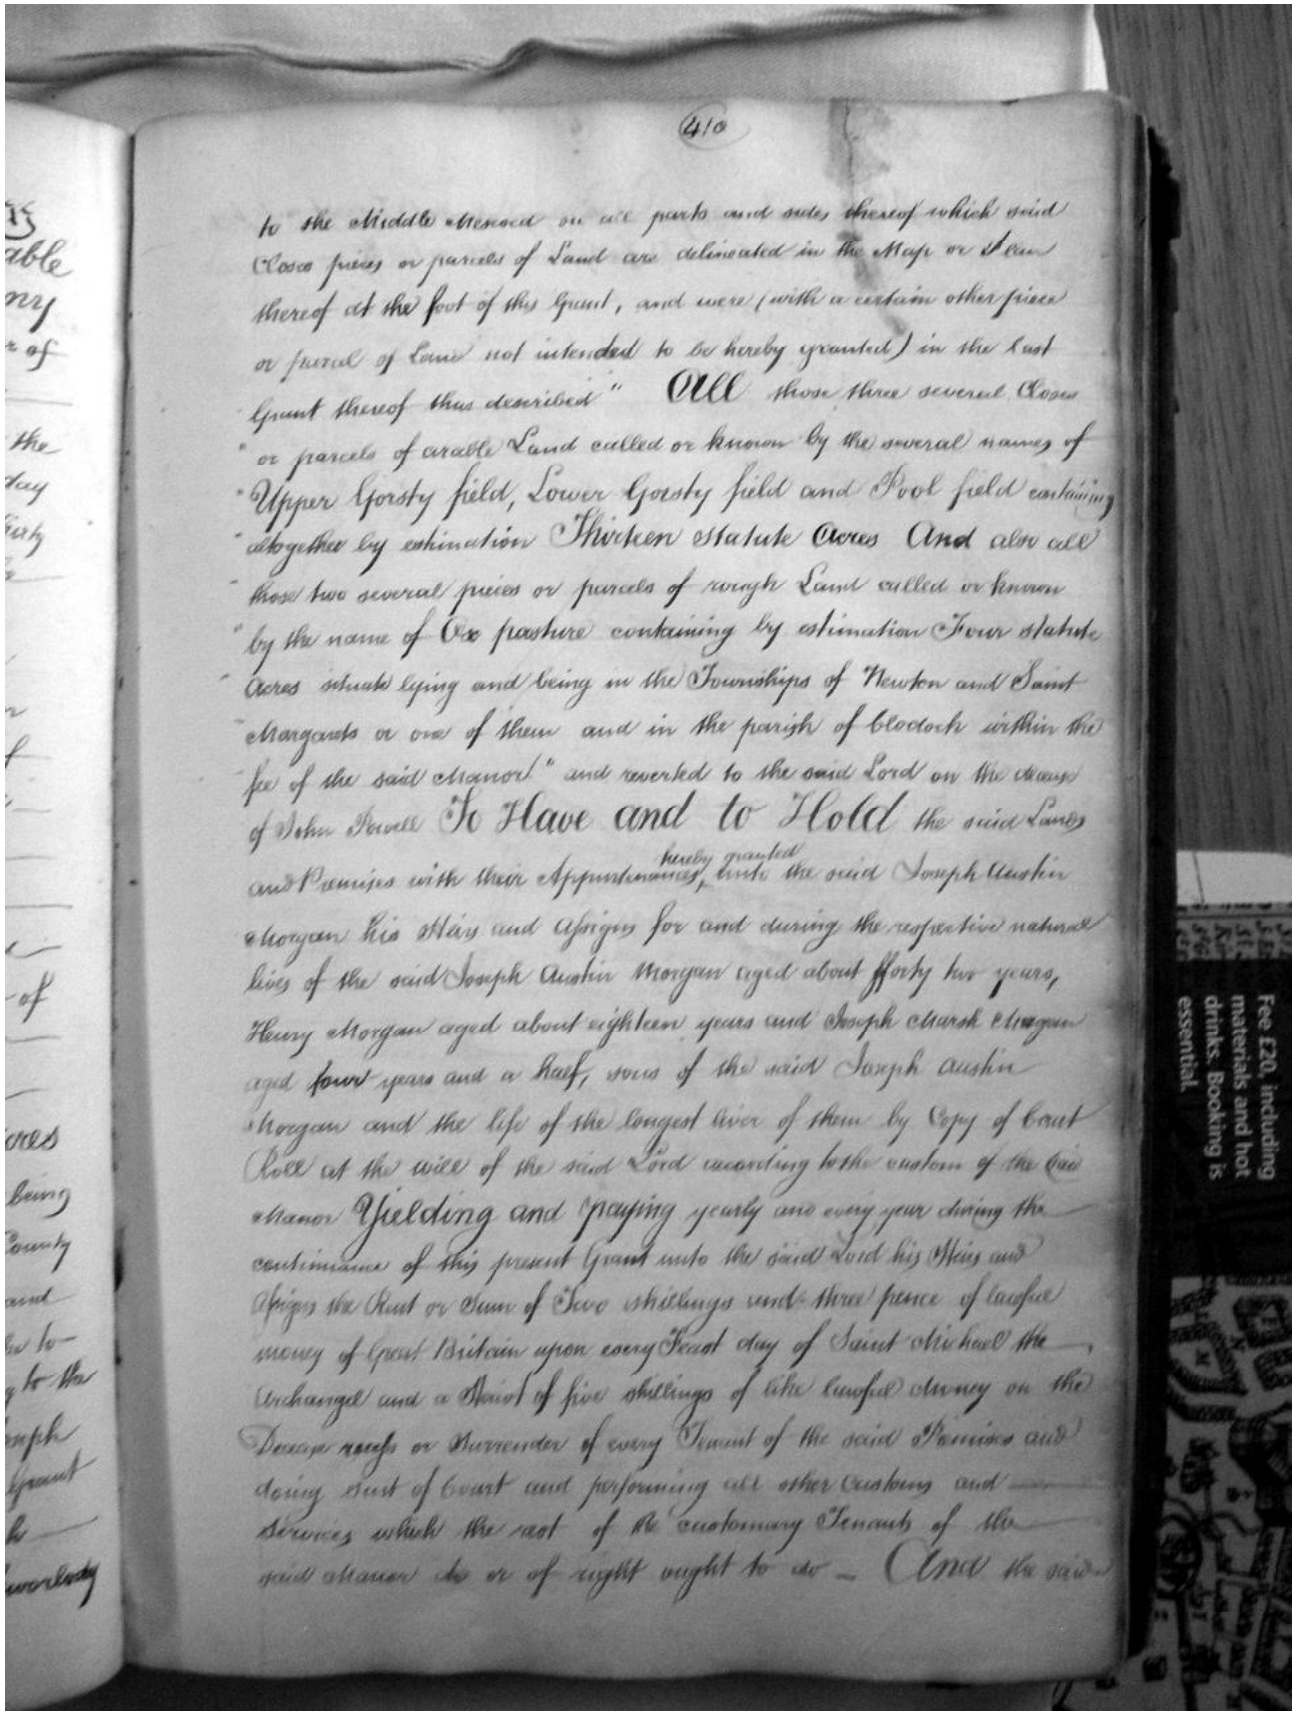 410
to the Middle Mesured on all parts and sides thereof which said
Closes pieces or parcels of Land are delineated in the Map or Plan
thereof at the foot of this Grant, and were (with a certain other piece
or parcel of Land not intended to be hereby granted) in the last
Grant thereof thus described " All those three several Closes
" or parcels of arable Land called or known by the several names of
" Upper Gorsty field, Lower Gorsty field and Pool field containing
" altogether by estimation Thirteen statute Acres And also all
" those two several pieces or parcels of rough Land called or known
" by the name of Ox pasture containing by estimation Four statute
" Acres situate lying and being in the Townships of Newton and Saint
" Margarets or one of them and in the parish of Clodock within the
" fee of the said Manor " and reverted to the said Lord on the decease
of John Powell To Have and to Hold the said Lands
hereby granted
and Premises with their Appurtenances, unto the said Joseph Austin
Morgan his Heirs and Assigns for and during the respective natural
lives of the said Joseph Austin Morgan aged about fforty two years,
Henry Morgan aged about eighteen years and Joseph Marsh Morgan
aged four years and a half, sons of the said Joseph Austin
Morgan and the life of the longest liver of them by Copy of Court
Roll at the will of the said Lord according to the custom of the said
Manor Yielding and paying yearly and every year during the
continuance of this present Grant unto the said Lord his Heirs and
Assigns the Rent or Sum of Two shillings and three pence of lawful
money of Great Britain upon every Feast day of Saint Michael the
Archangel and a Heriot of five shillings of like lawful Money on the
Decease or Surrender of every Tenant of the said Premises and
doing suit of Court and performing all other Customs and
Services which the rest of the customary Tenants of the
said Manor do or of right ought to do - And the said
able
ny
r of
the
day
of
ores
being
County
and
to
to the
Joseph
Grant
Fee £20, including
materials and hot
drinks. Booking is
essential.